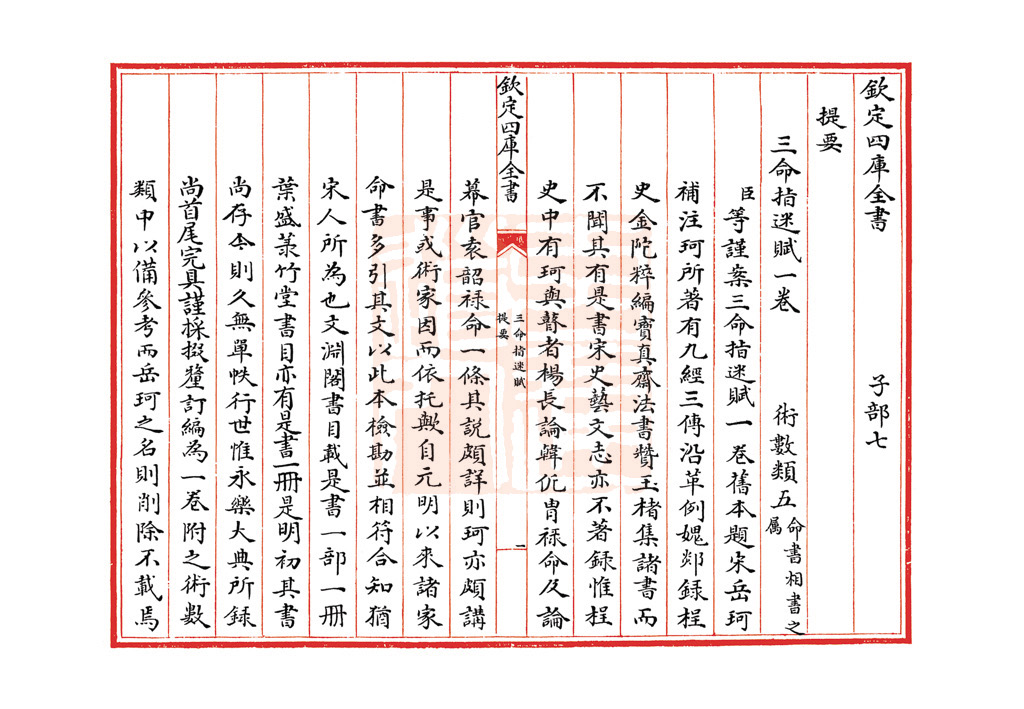 欽定四庫全書　子部七
提要
三命指迷賦一卷　術數類五命書相書之屬
臣等謹案三命指迷賦一卷舊本題宋岳珂
補注珂所著有九經三傳沿革例媿郯録桯
史金陀粹編寶真齋法書贊玉楮集諸書而
不聞其有是書宋史藝文志亦不著録惟桯
史中有珂與瞽者楊長論韓侂冑禄命及論
欽定四庫全書
三命指迷賦
提要
一
幕官袁韶禄命一條其説頗詳則珂亦頗講
是事或術家因而依托歟自元明以來諸家
命書多引其文以此本檢勘並相符合知猶
宋人所為也文淵閣書目載是書一部一冊
葉盛菉竹堂書目亦有是書一冊是明初其書
尚存今則久無單帙行世惟永樂大典所録
尚首尾完具謹採掇釐訂編為一卷附之術數
類中以備參考而岳珂之名則削除不載焉